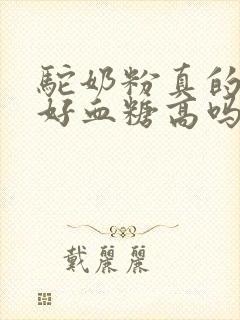 驼奶粉真的
好血糖高吗
戴麗麗